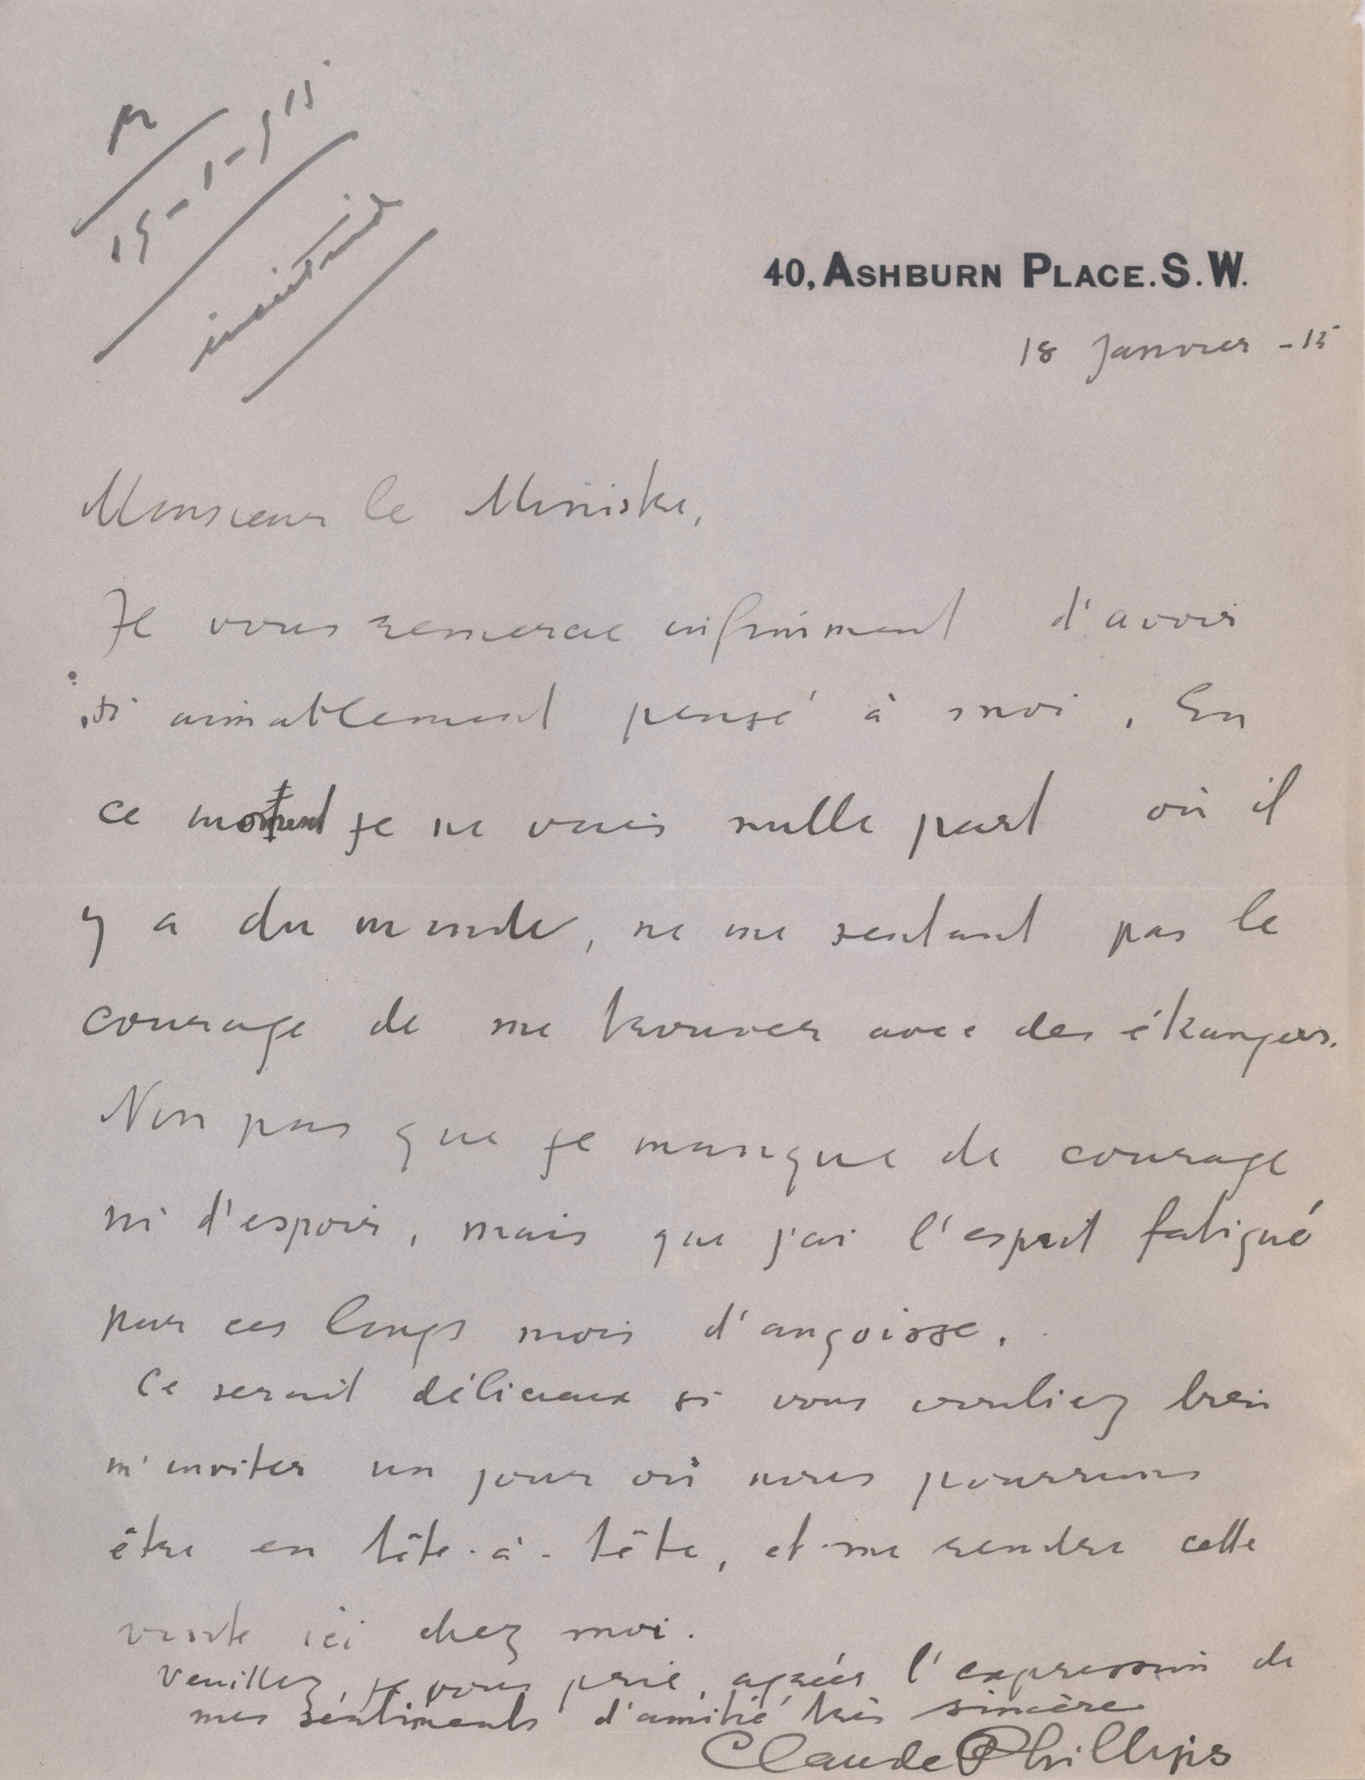 40, ASHBURN PLACE. S. W.
18 Janvier - 15
Monsieur le Ministre,
Je vous remercie infiniment d'avoir
si aimablement pensé à moi. En
ce moment je ne vais nulle part où il
y a du monde, ne me sentant pas le
courage de me trouver avec des étrangers.
Non pas que je manque de courage
ni d'espoir, mais que j'ai l'esprit fatigué
par ces longs mois d'angoisse.
Ce serait délicieux si vous vouliez bien
m'inviter un jour où nous pourrions
être en tête-à-tête, et me rendre cette
visite ici chez moi.
Veuillez, je vous prie, agréer l'expression de
mes sentiments d'amitié très sincère
Claude Phillips